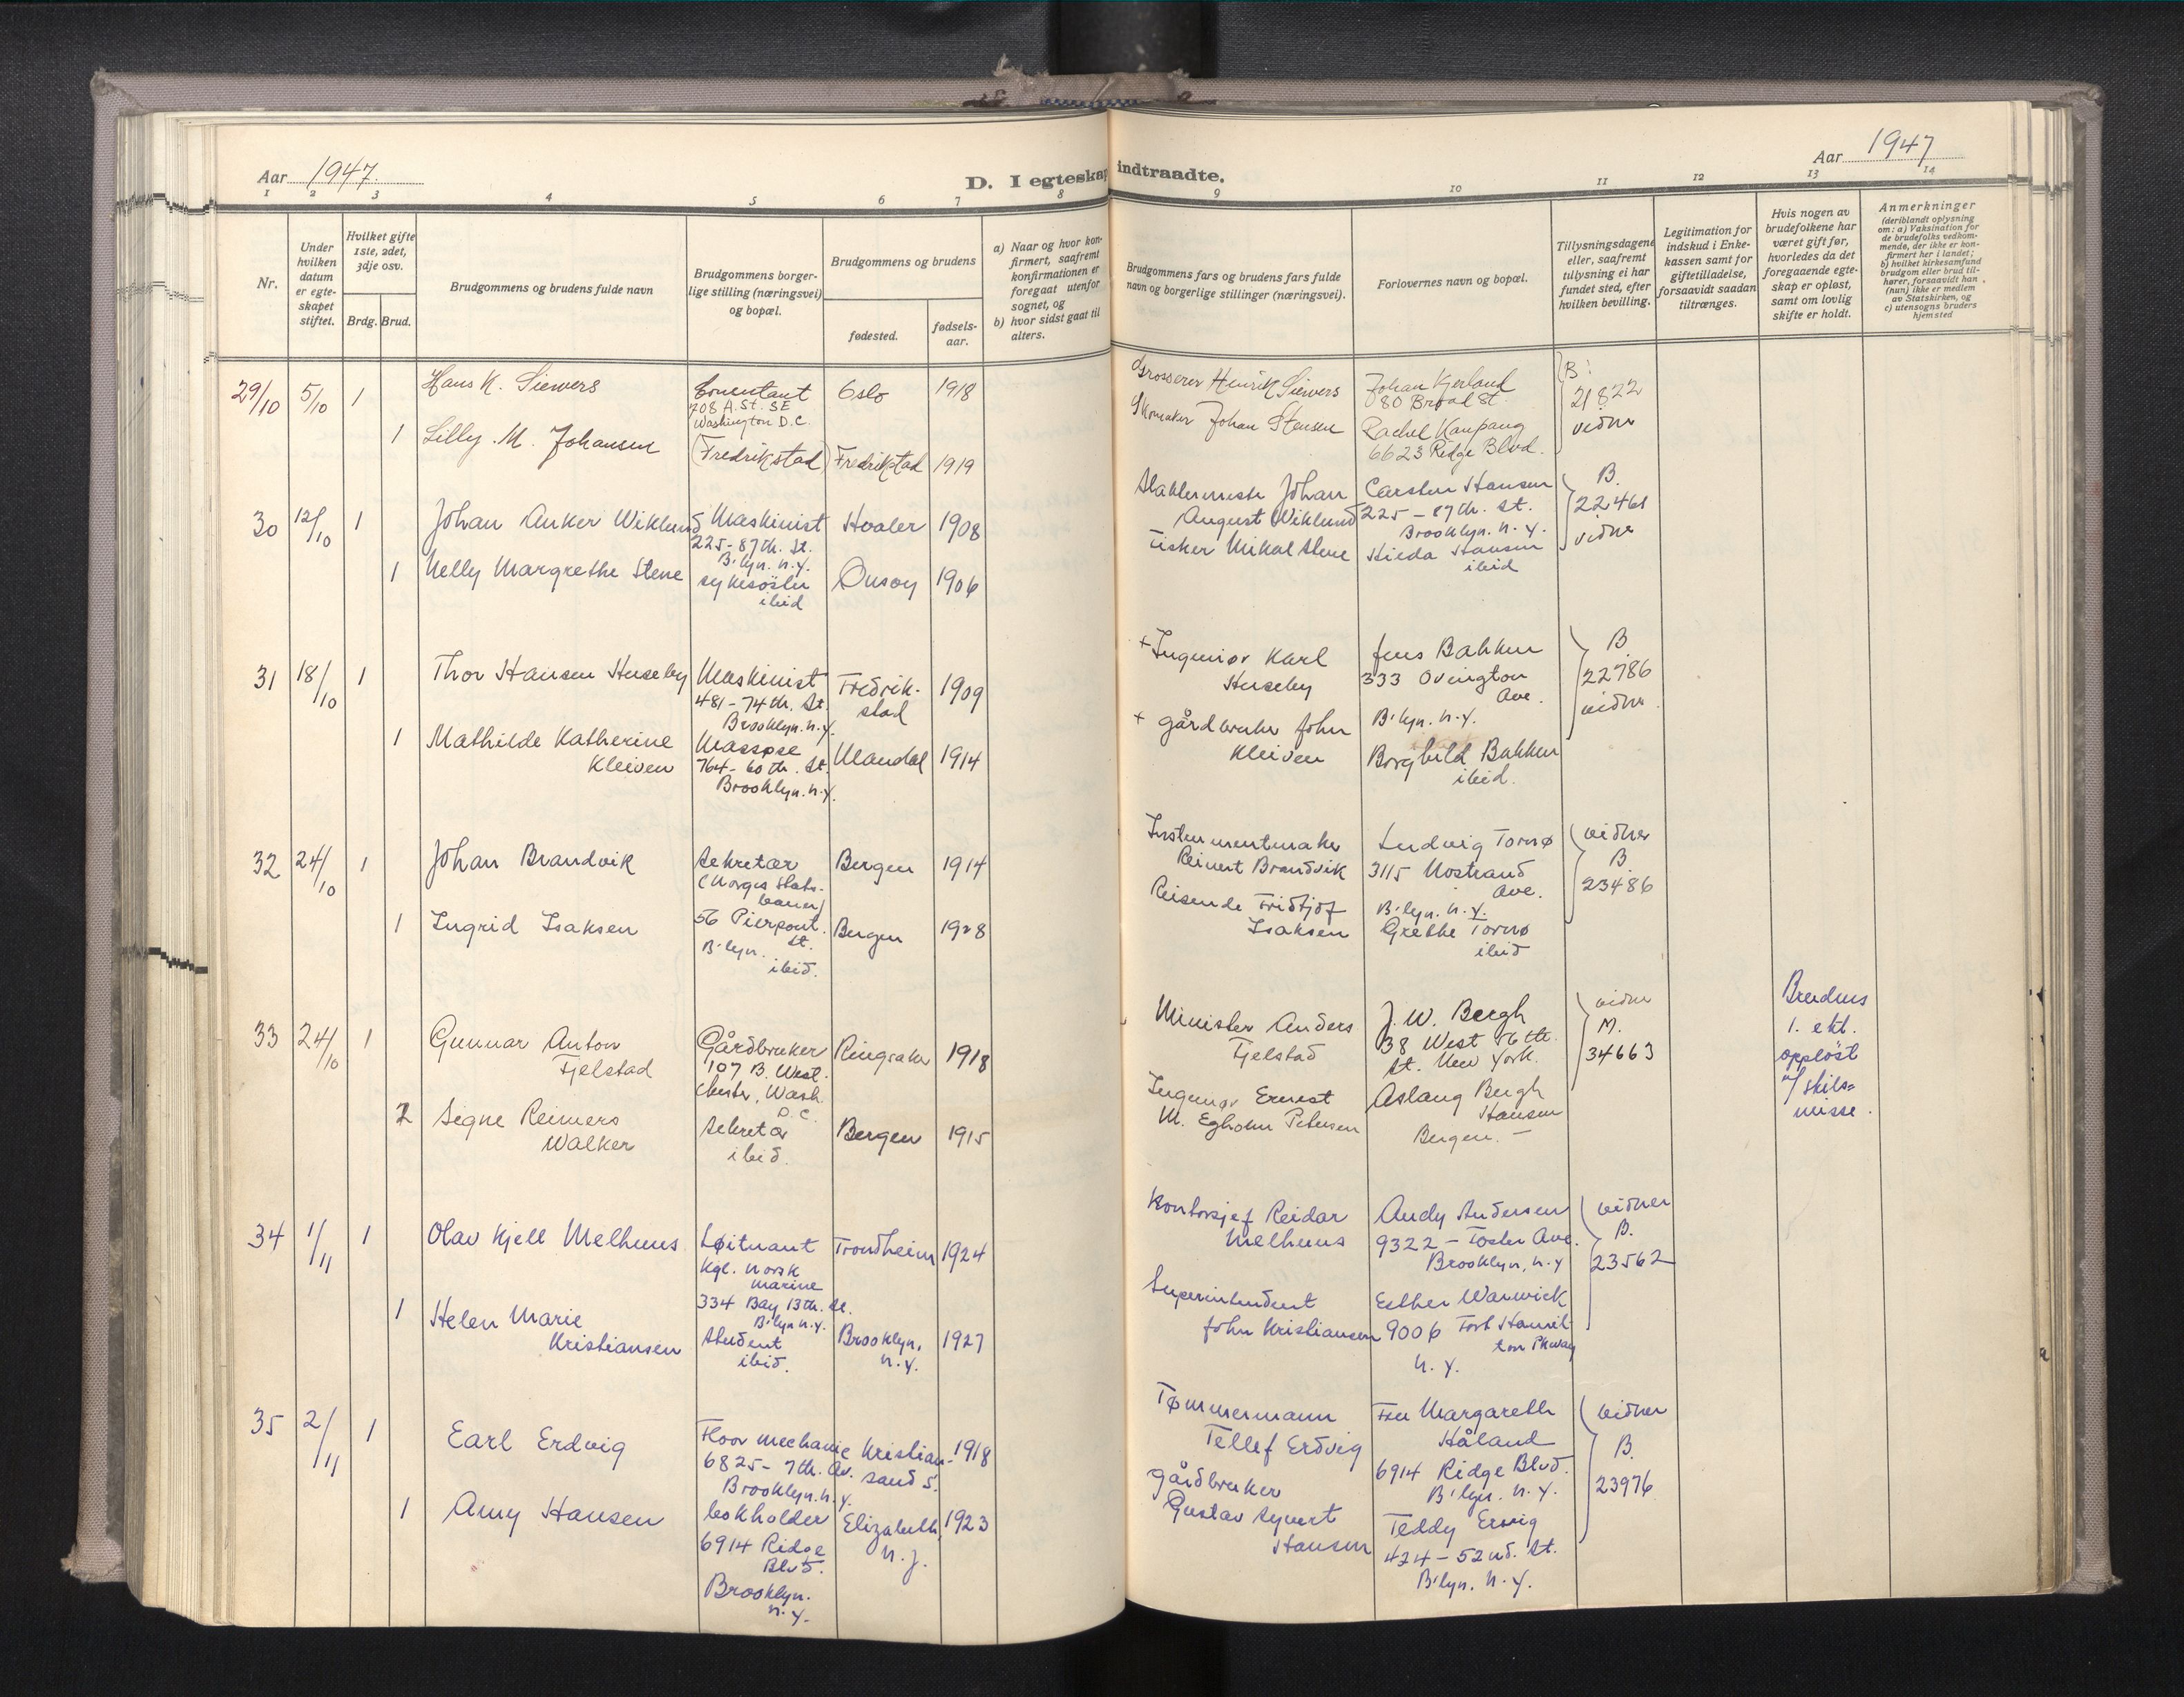 Aar 1947.
D. I egteskap indtraadte.
Aar 1947
1 2 3 4 5 6 7 8 9 10 11 12 13 14
Nr.
Under hvilken datum er egteskapet stiftet.
Hvilket gifte 1ste, 2det, 3dje osv.
Brdg. Brud.
Brudgommens og brudens fulde navn
Brudgommens borgerlige stilling (næringsvei) og bopæl.
Brudgommens og brudens
fødested.
fødselsaar.
a) Naar og hvor konfirmert, saafremt konfirmationen er foregaat utenfor sognet, og
b) hvor sidst gaat til alters.
Brudgommens fars og brudens fars fulde navn og borgerlige stillinger (næringsvei).
Forlovernes navn og bopæl.
Tillysningsdagene eller, saafremt tillysning ei har fundet sted, efter hvilken bevilling.
Legitimation for indskud i Enkekassen samt for giftetilladelse, forsaavidt saadan tiltrænges.
Hvis nogen av brudefolkene har været gift før, hvorledes da det foregaaende egteskap er opløst, samt om lovlig skifte er holdt.
Anmerkninger
(deriblandt oplysning om: a) Vaksination for de brudefolks vedkommende, der ikke er konfirmert her i landet; b) hvilket kirkesamfund brudgom eller brud tilhører, forsaavidt han (hun) ikke er medlem av Statskirken, og c) utensogns bruders hjemsted
29/10 5/10 1
Hans K. Siewers
708 A. St. SE
Washington D.C.
Oslo 1918
1 Lilly. M. Johansen
(Fredrikstad) Fredrikstad 1919
Grosserer Henrik Siewers
Skomaker Johan Stensen
Johan Kjerland
80 Broad St.
Rachel Kaupang
6623 Ridge Blvd.
B.
21822
vidner
30 12/10 1
Johan Anker Wiklund
Maskinist
225 - 87th. St.
B'lyn. N.Y.
Hvaler 1908
1 Nelly Margrethe Stene
sykesøster
ibid
Onsøy 1906
Johan
August Wiklund
Fisker Mikal Stene
Carsten Hansen
225 - 87th. St.
Brooklyn. N.Y.
Hilda Hansen
ibid
B.
22461
vidner
31 18/10 1
Thor Hansen Huseby
Maskinist
481 - 74th. St.
Brooklyn. N.Y.
Fredrikstad
1909
1 Mathilde Katherine
Kleiven
Massøse
764 - 60th. St.
Brooklyn. N.Y.
Mandal 1914
+ Ingeniør Karl
Huseby
+ gårdbruker John
Kleiven
Jens Bakken
333 Ovington
Ave.
B'lyn. N.Y.
Borghild Bakken
ibid.
B.
22786
vidner
32 24/10 1
Johan Brandvik
Sekretær
(Norges Statsbaner)
56 Pierpont.
St.
B'lyn.
Bergen 1914
1 Ingrid Isaksen
ibid.
Bergen 1928
Instrumentmaker
Reinert Brandvik
Reisende Fridtjof
Isaksen
Ludvig Tornø
3115 Nostrand
Ave.
B'lyn. N.Y.
Grethe Tornø
ibid
vidner
B.
23486
33 24/10 1
Gunnar Anton
Fjelstad
Gårdbruker
107 B. Westchester, Wash.
D.C.
Ringsaker 1918
2 Signe Reimers
Walker
Sekretær
ibid.
Bergen 1915
Minister Anders
Fjelstad
Ingeniør Ernest
M. Egholm Petersen
J. W. Bergh
38 West 76th.
St. New York.
Aslaug Bergh
Hansen
Bergen. -
vidner
M.
34663
Brudens
1. ekt.
oppløst
v/ skils=
misse.
34 1/11 1
Olav Kjell Melhuus
Løitnant
Kgl. Norsk
marine
334 Bay 13th. St.
B'lyn N.Y.
Trondheim 1924
1 Helen Marie
Kristiansen
Student
ibid.
Brooklyn,
N.Y.
1927
Kontorsjef Reidar
Melhuus
Superintendent
John Kristiansen
Andy Andersen
9322 - Foster Ave.
Brooklyn, N.Y
Esther Warwick
9006 Fort Hamilton Pkway
N.Y.
vidner
B.
23562
35 2/11 1
Earl Erdvig
Floor mechanic
6825 - 7th. Av.
Brooklyn. N.Y.
Kristiansand S.
1918
1 Amy Hansen
bokholder
6914 Ridge
Blvd.
Brooklyn.
N.Y.
Elizabeth,
N.J.
1923
Tømmermann
Tellef Erdvig
Gårdbruker
Gustav Syvert
Hansen
Fru Margareth
Håland
6914 Ridge Blvd.
B'lyn. N.Y.
Teddy Ervig
424 - 52nd. St.
B'lyn. N.Y.
vidner
B.
23976